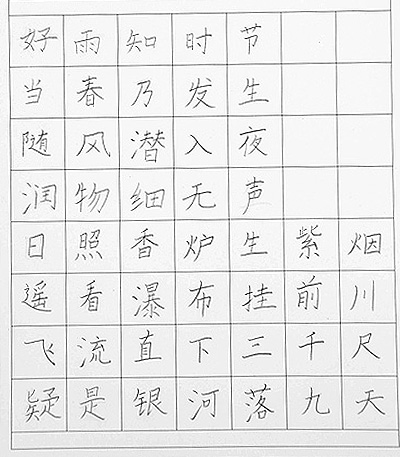 好雨知时节
当春乃发生
随风潜入夜
润物细无声
日照香炉生紫烟
遥看瀑布挂前川
飞流直下三千尺
疑是银河落九天